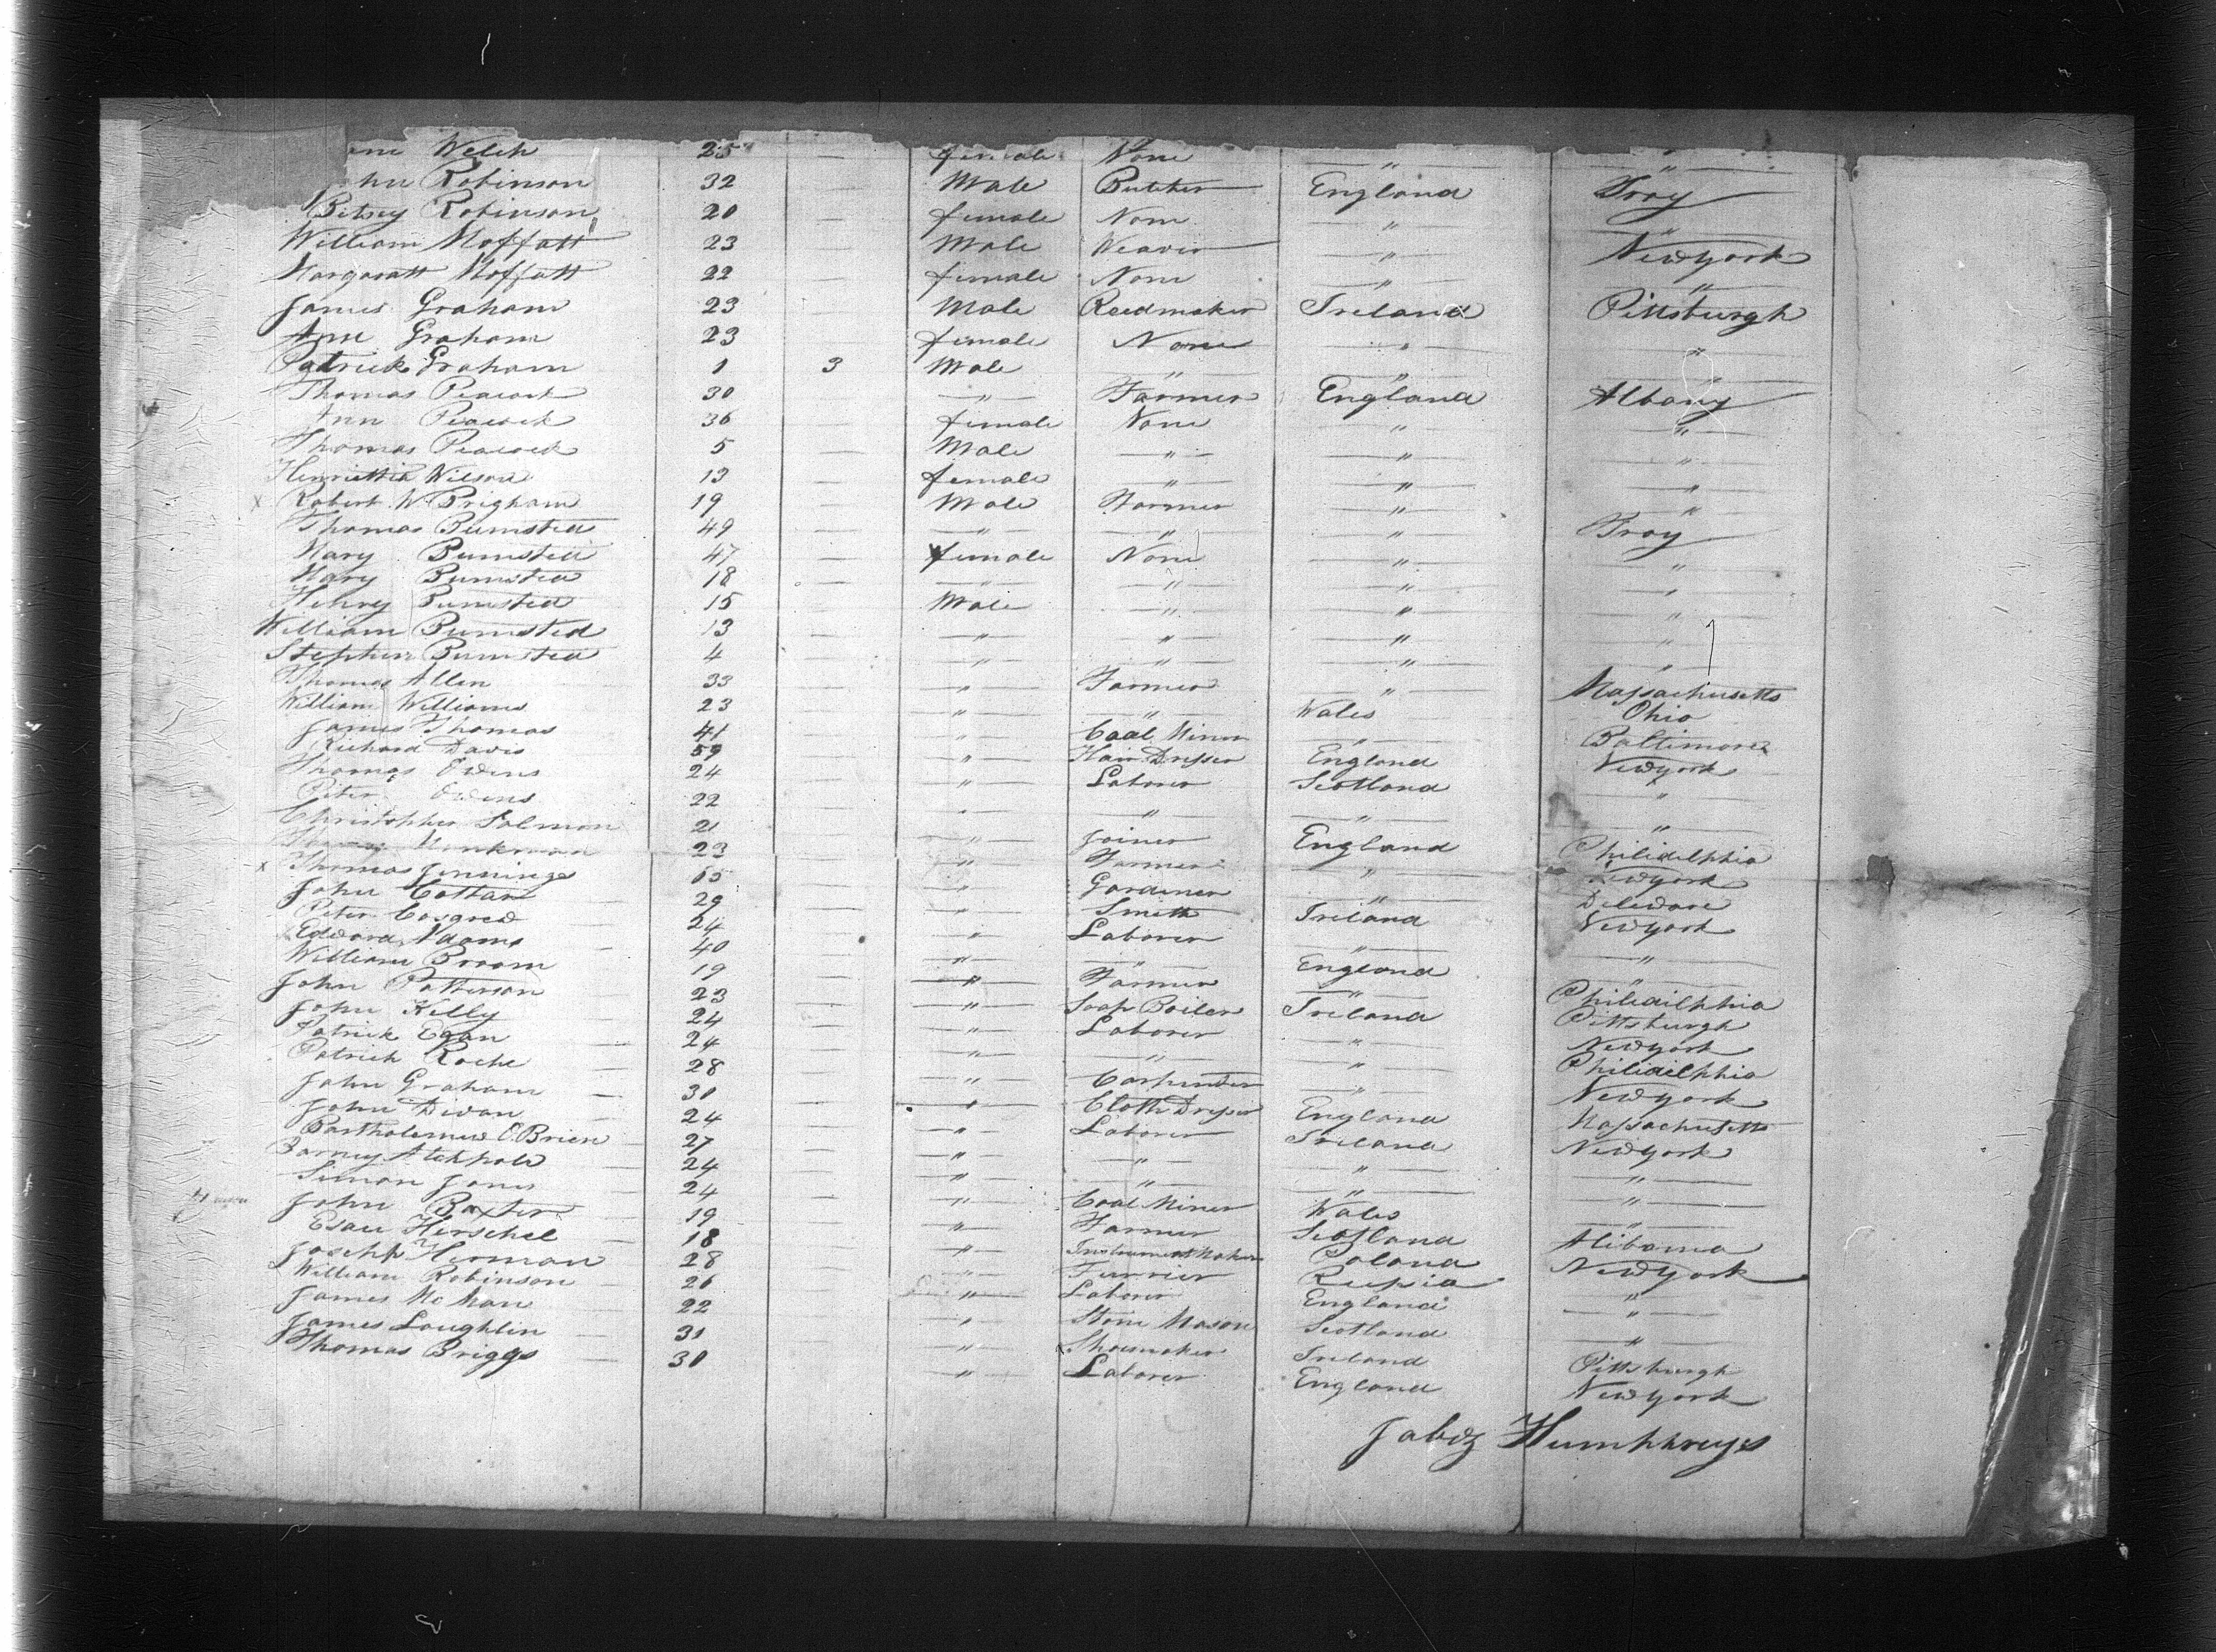 Welch 25 — female None " "
Robinson 32 — Male Butcher England Troy
Betsey Robinson 20 — female None " "
William Moffatt 23 — Male Weaver " Newyork
Margaratt Moffatt 22 — female None " "
James Graham 23 — Male Reedmaker Ireland Pittsburgh
Ann Graham 23 — female None " "
Patrick Graham 1 3 Male " " "
Thomas Peacock 30 — " Farmer England Albany
Ann Peacock 36 — female None " "
Thomas Peacock 5 — Male " " "
Henriettia Wilson 13 — female " " "
x Robert W. Brigham 19 — Male Farmer " "
Thomas Bumsted 49 — " " " Troy
Mary Bumsted 47 — female None " "
Mary Bumsted 18 — " " " "
Henry Bumsted 15 — Male " " "
William Bumsted 13 — " " " "
Stephen Bumsted 4 — " " " "
Thomas Allen 33 — " Farmer " Massachusetts
William Williams 23 — " " Wales Ohio
James Thomas 41 — " Coal Miner " Baltimore
Richard Davis 59 — " Hair Dresser England Newyork
Thomas Owens 24 — " Laborer Scotland "
Peter Owens 22 — " " " "
Christopher Salmon 21 — " Joiner England Philidelphia
Thomas 23 — " Farmer " Newyork
x Thomas Jennings — " Gardener " Deleware
John Cottam 29 — " Smith Ireland Newyork
Peter 24 — " Laborer " "
Edward Adams 40 — " " England "
William Broom 19 — " Farmer " Philidelphia
John Patterson 23 — " Soap Boiler Ireland Pittsburgh
John Kelly 24 — " Laborer " Newyork
Patrick Egan 24 — " " " Philidelphia
Patrick Roche 28 — " Carpenter " Newyork
John Graham 30 — " Cloth Dresser England Massachusetts
John Divan 24 — " Laborer Ireland Newyork
Bartholemew O.Brien 27 — " " " "
Barney Atchpole 24 — " " " "
Simon Jones 24 — " Coal Miner Wales "
John Baxter 19 — " Farmer Scotland Alibama
Esau Herschel 18 — " Instrument Maker Poland Newyork
Joseph Herman 28 — " Furrier Russia "
William Robinson 26 — " Laborer England "
James McMan 22 — " Stone Mason Scotland "
James Loughlin 31 — " Shoemaker Ireland Pittsburgh
Thomas Briggs 30 — " Laborer England Newyork
Jabez Humphreys